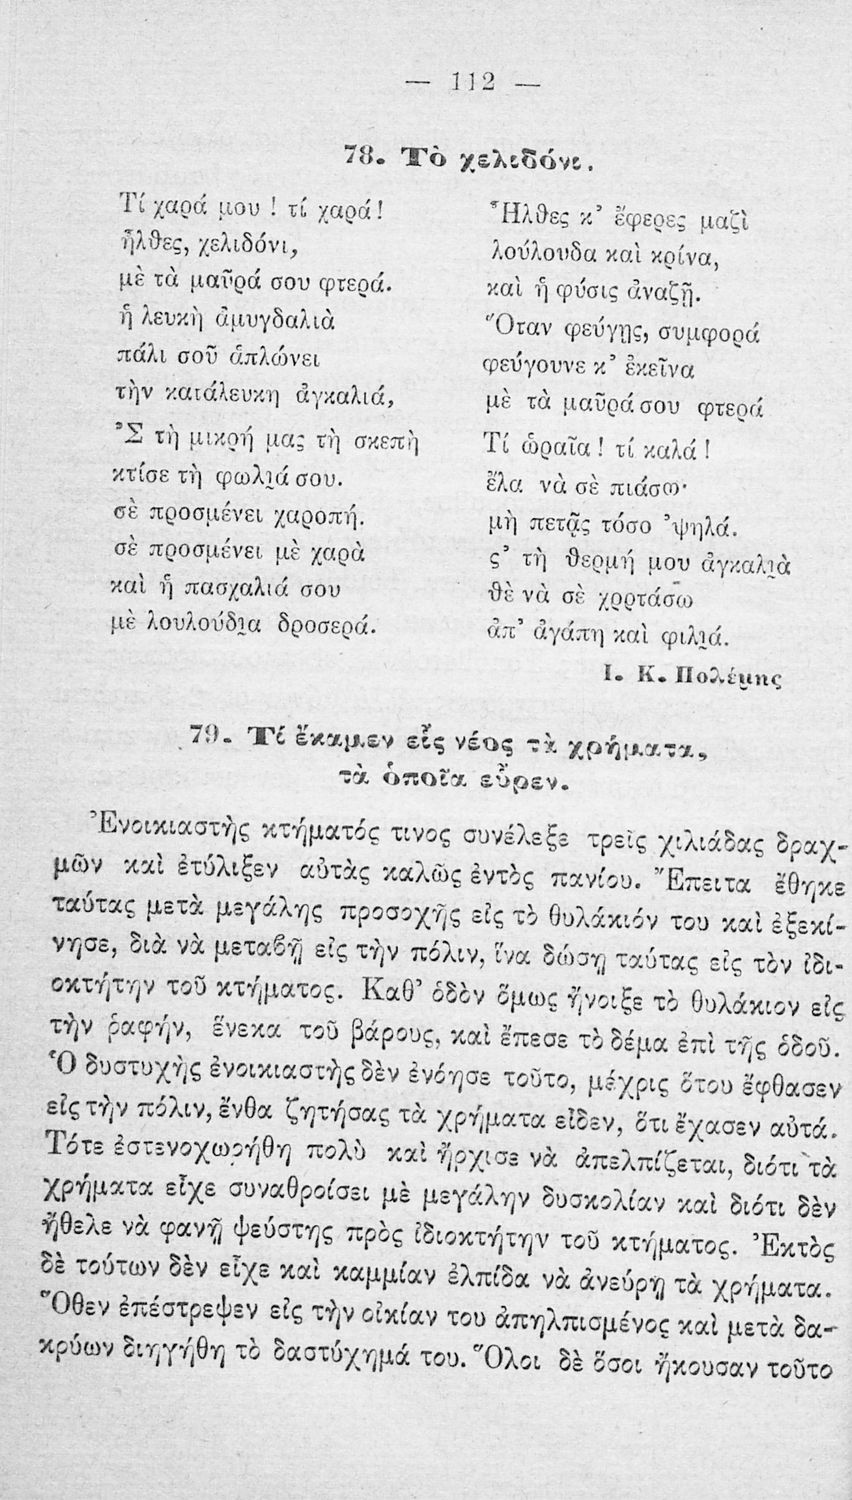 — 112 —
78. Τὸ χελιδόνι.
Τί χαρά μου ! τί χαρά!
ἦλθες, χελιδόνι,
μὲ τὰ μαῦρά σου φτερά.
ἡ λευκὴ ἀμυγδαλιὰ
πάλι σοῦ ἁπλώνει
τὴν κατάλευκη ἀγκαλιά,
Ἐς τὴ μικρή μας τὴ σκεπὴ
κτίσε τὴ φωλιά σου.
σὲ προσμένει χαροπή.
σὲ προσμένει μὲ χαρὰ
καὶ ἡ πασχαλιά σου
μὲ λουλούδια δροσερά.
Ἦλθες κ᾽ ἔφερες μαζὶ
λούλουδα καὶ κρίνα,
καὶ ἡ φύσις ἀναζῇ.
Ὅταν φεύγῃς, συμφορά
φεύγουνε κ᾽ ἐκεῖνα
μὲ τὰ μαῦρά σου φτερά
Τί ὡραῖα ! τί καλά !
ἔλα νὰ σὲ πιάσω·
μὴ πετᾷς τόσο ᾽ψηλά.
ς᾽ τὴ θερμή μου ἀγκαλιὰ
θὲ νὰ σὲ χορτάσω
ἀπ᾽ ἀγάπη καὶ φιλιά.
Ι. Κ. Πολέμης
79. Τί ἔκαμεν εἷς νέος τὰ χρήματα,
τὰ ὁποῖα εὗρεν.
Ἐνοικιαστὴς κτήματός τινος συνέλεξε τρεῖς χιλιάδας δραχ-
μῶν καὶ ἐτύλιξεν αὐτὰς καλῶς ἐντὸς πανίου. Ἔπειτα ἔθηκε
ταύτας μετὰ μεγάλης προσοχῆς εἰς τὸ θυλάκιόν του καὶ ἐξεκί-
νησε, διὰ νὰ μεταβῇ εἰς τὴν πόλιν, ἵνα δώσῃ ταύτας εἰς τὸν ἰδι-
οκτήτην τοῦ κτήματος. Καθ᾽ ὁδὸν ὅμως ἤνοιξε τὸ θυλάκιον εἰς
τὴν ῥαφήν, ἕνεκα τοῦ βάρους, καὶ ἔπεσε τὸ δέμα ἐπὶ τῆς ὁδοῦ.
Ὁ δυστυχὴς ἐνοικιαστὴς δὲν ἐνόησε τοῦτο, μέχρις ὅτου ἔφθασεν
εἰς τὴν πόλιν, ἔνθα ζητήσας τὰ χρήματα εἶδεν, ὅτι ἔχασεν αὐτά.
Τότε ἐστενοχωρήθη πολὺ καὶ ἤρχισε νὰ ἀπελπίζεται, διότι τὰ
χρήματα εἶχε συναθροίσει μὲ μεγάλην δυσκολίαν καὶ διότι δὲν
ἤθελε νὰ φανῇ ψεύστης πρὸς ἰδιοκτήτην τοῦ κτήματος. Ἐκτὸς
δὲ τούτων δὲν εἶχε καὶ καμμίαν ἐλπίδα νὰ ἀνεύρῃ τὰ χρήματα.
Ὅθεν ἐπέστρεψεν εἰς τὴν οἰκίαν του ἀπηλπισμένος καὶ μετὰ δα-
κρύων διηγήθη τὸ δαστύχημά του. Ὅλοι δὲ ὅσοι ἤκουσαν τοῦτο